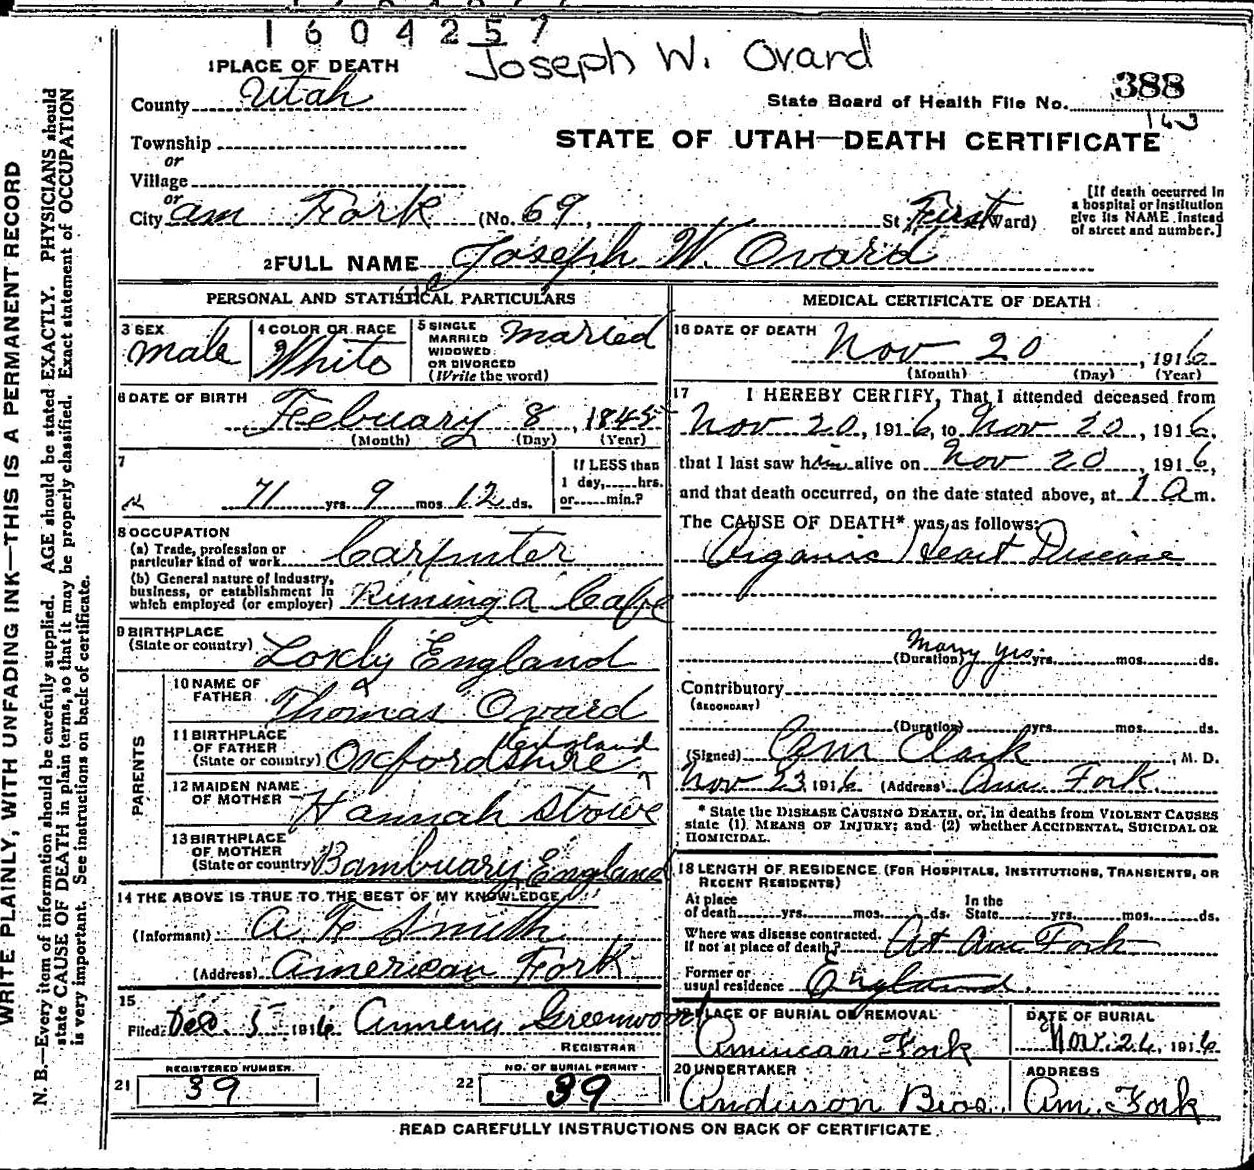 1604257
Joseph W. Ovard
1 PLACE OF DEATH
County Utah
State Board of Health File No. 388
163
Township
or
Village
or
STATE OF UTAH—DEATH CERTIFICATE
City Am Fork (No. 69, St; First Ward)
[If death occurred in a hospital or institution give its NAME instead of street and number.]
2 FULL NAME Joseph W. Ovard
PERSONAL AND STATISTICAL PARTICULARS
3 SEX Male
4 COLOR OR RACE White
5 SINGLE MARRIED WIDOWED OR DIVORCED (Write the word) Maried
6 DATE OF BIRTH February 8, 1845
(Month) (Day) (Year)
7
71 yrs 9 mos 12 ds.
If LESS than 1 day, hrs. or min.?
8 OCCUPATION
(a) Trade, profession or particular kind of work Carpinter
(b) General nature of industry, business, or establishment in which employed (or employer) Runing a Cafe
9 BIRTHPLACE (State or country) Loxly England
PARENTS
10 NAME OF FATHER Thomas Ovard
11 BIRTHPLACE OF FATHER (State or country) Oxfordshire England
12 MAIDEN NAME OF MOTHER Hannah Strowe
13 BIRTHPLACE OF MOTHER (State or country) Bambuary England
14 THE ABOVE IS TRUE TO THE BEST OF MY KNOWLEDGE
(Informant) A F Smith
(Address) American Fork
15
Filed Dec 5 1916 Amena Greenwood
REGISTRAR
REGISTERED NUMBER
21 39
NO. OF BURIAL PERMIT
22 39
MEDICAL CERTIFICATE OF DEATH
16 DATE OF DEATH Nov 20, 1916
(Month) (Day) (Year)
17 I HEREBY CERTIFY, That I attended deceased from
Nov 20, 1916, to Nov 20, 1916,
that I last saw him alive on Nov 20, 1916,
and that death occurred, on the date stated above, at 1 a m.
The CAUSE OF DEATH* was as follows:
Organic Heart Disease
(Duration) Many yrs. yrs. mos. ds.
Contributory
(SECONDARY)
(Duration) yrs. mos. ds.
(Signed) Am Clark, M. D.
Nov 23 1916 (Address) Am. Fork.
* State the DISEASE CAUSING DEATH, or, in deaths from VIOLENT CAUSES
state (1) MEANS OF INJURY; and (2) whether ACCIDENTAL, SUICIDAL OR
HOMICIDAL.
18 LENGTH OF RESIDENCE (FOR HOSPITALS, INSTITUTIONS, TRANSIENTS, OR RECENT RESIDENTS)
At place of death yrs. mos. ds. In the State yrs. mos. ds.
Where was disease contracted, if not at place of death? At Am Fork
Former or usual residence England
19 PLACE OF BURIAL OR REMOVAL American Fork
DATE OF BURIAL Nov. 26, 1916
20 UNDERTAKER Anderson Bros.
ADDRESS Am. Fork
READ CAREFULLY INSTRUCTIONS ON BACK OF CERTIFICATE.
WRITE PLAINLY, WITH UNFADING INK—THIS IS A PERMANENT RECORD
N. B.—Every item of information should be carefully supplied. AGE should be stated EXACTLY. PHYSICIANS should
state CAUSE OF DEATH in plain terms, so that it may be properly classified. Exact statement of OCCUPATION
is very important. See instructions on back of certificate.